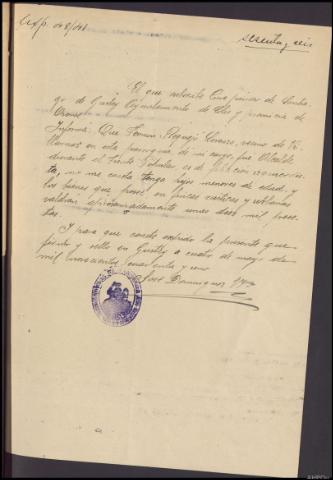 El que suscribe Cura párroco de Santia-
go de Gustey Ayuntamiento de Coles y provincia de
Orense
Informa: Que Fermín vecino de Vi-
llarnaz en esta parroquia de mi cargo, fue Alcalde
durante el Frente Popular, es de filiación izquierdis-
ta, no me consta tenga hijos menores de edad, y
los bienes que posee, en fincas rústicas y urbanas
valdrán aproximadamente unas dos mil pese-
tas.
Y para que conste expido la presente que
firmo y sello en Gustey a cuatro de mayo de
mil novecientos cuarenta y uno
José Dominguez